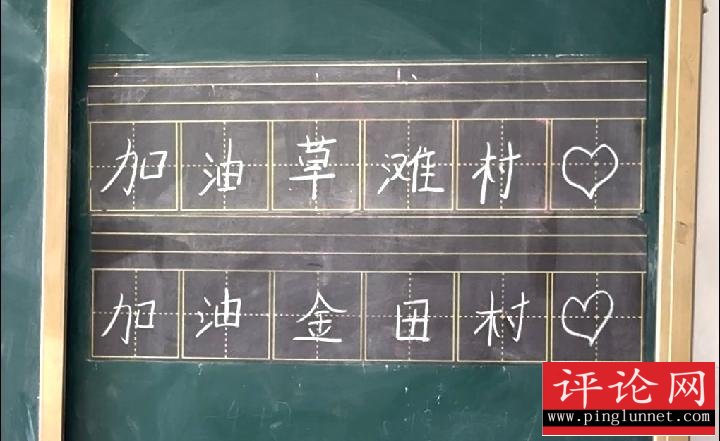 加油草滩村♡
加油金田村♡
评论网
www.pinglunnet.com